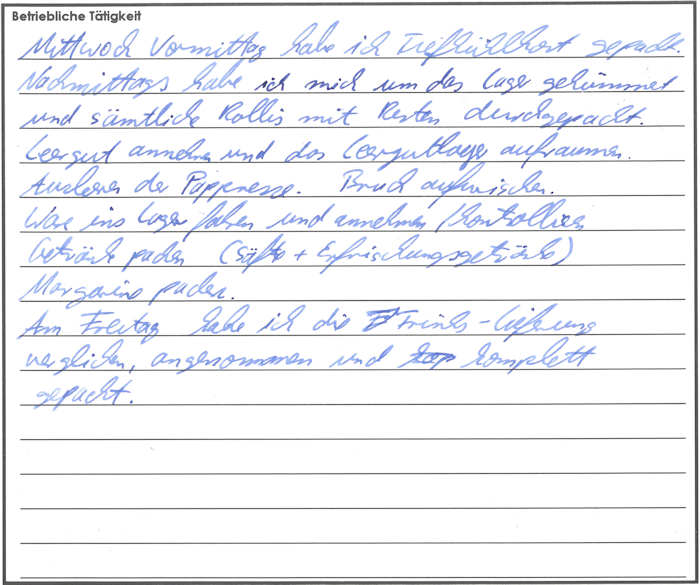 Betriebliche Tätigkeit
Mittwoch Vormittag habe ich Tiefkühlkost gepackt.
Nachmittags habe ich mich um das Lager gekümmert
und sämtliche Rollis mit Resten durchgepackt.
Leergut annehmen und das Leergutlager aufräumen.
Ausleeren der Pappresse. Bruch aufwischen.
Ware ins Lager fahren und annehmen / kontrollieren
Getränke packen (Säfte + Erfrischungsgetränke)
Margarine packen.
Am Freitag habe ich die Trinks-Lieferung
verglichen, angenommen und komplett
gepackt.